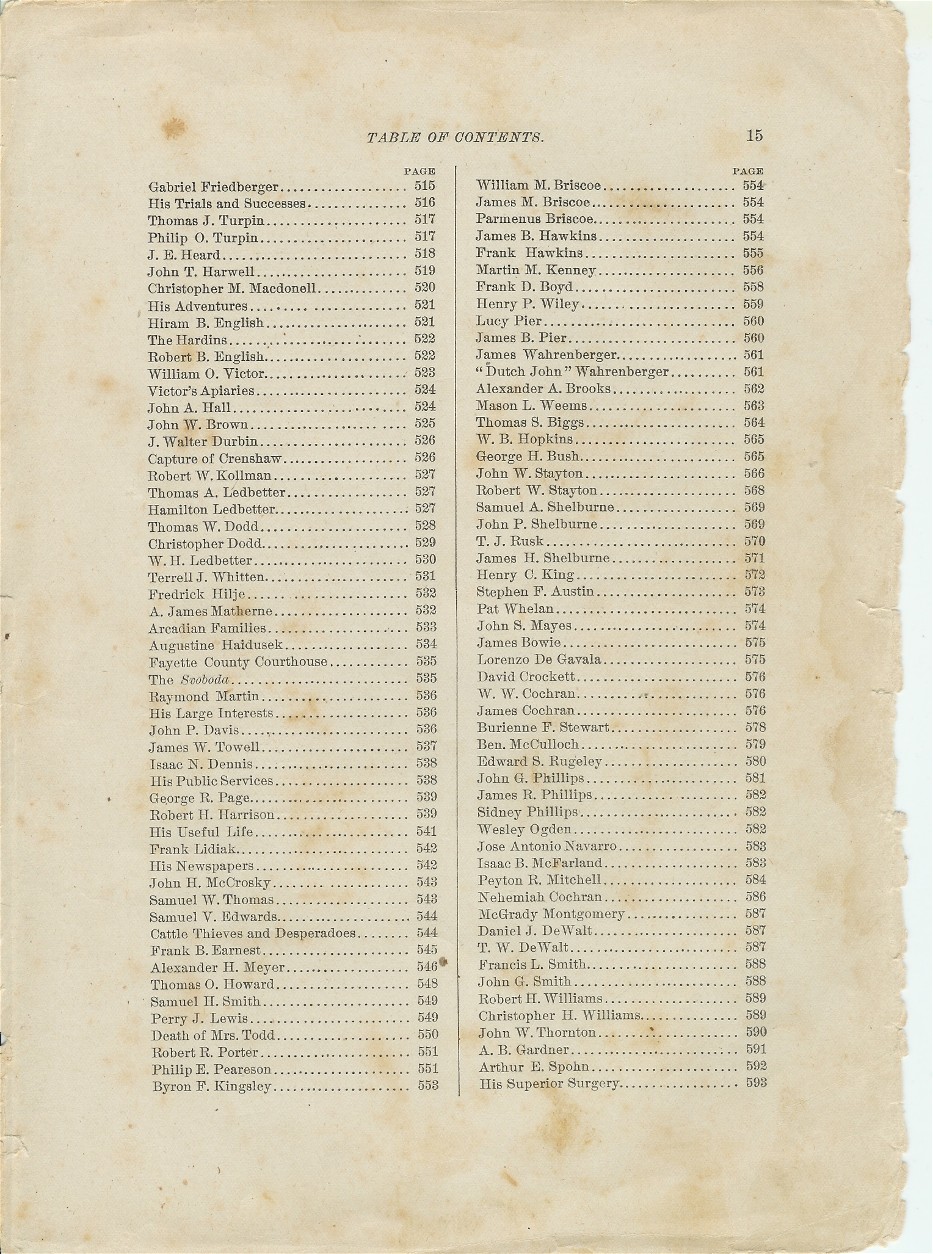 TABLE OF CONTENTS. 15
PAGE
Gabriel Friedberger.................. 515
His Trials and Successes............... 516
Thomas J. Turpin..................... 517
Philip O. Turpin...................... 517
J. E. Heard........................... 518
John T. Harwell...................... 519
Christopher M. Macdonell............. 520
His Adventures....................... 521
Hiram B. English..................... 521
The Hardins.......................... 522
Robert B. English..................... 522
William O. Victor..................... 523
Victor's Apiaries...................... 524
John A. Hall.......................... 524
John W. Brown....................... 525
J. Walter Durbin...................... 526
Capture of Crenshaw.................. 526
Robert W. Kollman.................... 527
Thomas A. Ledbetter.................. 527
Hamilton Ledbetter.................... 527
Thomas W. Dodd...................... 528
Christopher Dodd...................... 529
W. H. Ledbetter....................... 530
Terrell J. Whitten..................... 531
Fredrick Hilje........................ 532
A. James Matherne.................... 532
Arcadian Families..................... 533
Augustine Haidusek................... 534
Fayette County Courthouse............ 535
The Svoboda.......................... 535
Raymond Martin...................... 536
His Large Interests.................... 536
John P. Davis......................... 536
James W. Towell...................... 537
Isaac N. Dennis....................... 538
His Public Services.................... 538
George R. Page........................ 539
Robert H. Harrison.................... 539
His Useful Life....................... 541
Frank Lidiak.......................... 542
His Newspapers....................... 542
John H. McCrosky.................... 543
Samuel W. Thomas.................... 543
Samuel V. Edwards.................... 544
Cattle Thieves and Desperadoes........ 544
Frank B. Earnest...................... 545
Alexander H. Meyer................... 546
Thomas O. Howard.................... 548
Samuel H. Smith...................... 549
Perry J. Lewis........................ 549
Death of Mrs. Todd.................... 550
Robert R. Porter...................... 551
Philip E. Peareson..................... 551
Byron F. Kingsley..................... 553
PAGE
William M. Briscoe.................... 554
James M. Briscoe...................... 554
Parmenus Briscoe...................... 554
James B. Hawkins..................... 554
Frank Hawkins....................... 555
Martin M. Kenney..................... 556
Frank D. Boyd........................ 558
Henry P. Wiley....................... 559
Lucy Pier............................. 560
James B. Pier......................... 560
James Wahrenberger.................. 561
"Dutch John" Wahrenberger.......... 561
Alexander A. Brooks................... 562
Mason L. Weems...................... 563
Thomas S. Biggs....................... 564
W. B. Hopkins........................ 565
George H. Bush........................ 565
John W. Stayton...................... 566
Robert W. Stayton..................... 568
Samuel A. Shelburne.................. 569
John P. Shelburne..................... 569
T. J. Rusk............................. 570
James H. Shelburne................... 571
Henry C. King........................ 572
Stephen F. Austin..................... 573
Pat Whelan........................... 574
John S. Mayes......................... 574
James Bowie.......................... 575
Lorenzo De Gavala.................... 575
David Crockett........................ 576
W. W. Cochran........................ 576
James Cochran........................ 576
Burienne F. Stewart................... 578
Ben. McCulloch........................ 579
Edward S. Rugeley.................... 580
John G. Phillips....................... 581
James R. Phillips...................... 582
Sidney Phillips........................ 582
Wesley Ogden......................... 582
Jose Antonio Navarro.................. 583
Isaac B. McFarland.................... 583
Peyton R. Mitchell.................... 584
Nehemiah Cochran.................... 586
McGrady Montgomery................. 587
Daniel J. DeWalt...................... 587
T. W. DeWalt......................... 587
Francis L. Smith....................... 588
John G. Smith......................... 588
Robert H. Williams.................... 589
Christopher H. Williams............... 589
John W. Thornton..................... 590
A. B. Gardner......................... 591
Arthur E. Spohn...................... 592
His Superior Surgery.................. 593